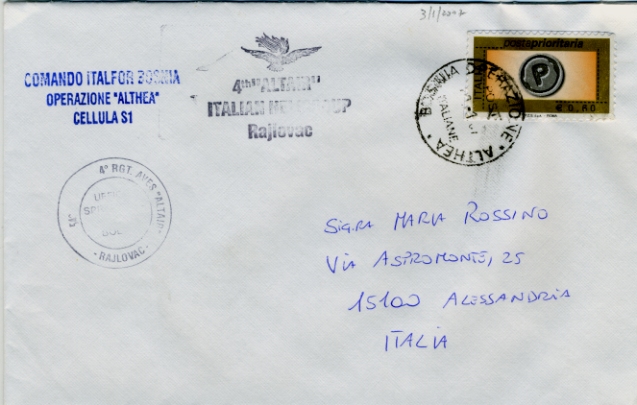 3/1/2007
posteprioritaria
ITALIA
€ 0,60
COMANDO ITALFOR BOSNIA
OPERAZIONE "ALTHEA"
CELLULA S1
4th "ALTAIR"
ITALIAN HELI GROUP
Rajlovac
BOSNIA OPERAZIONE
ALTHEA
4° RGT. AVES "ALTAIR"
RAJLOVAC
Sig.ra MARIA ROSSINO
VIA ASPROMONTE, 25
15100 ALESSANDRIA
ITALIA